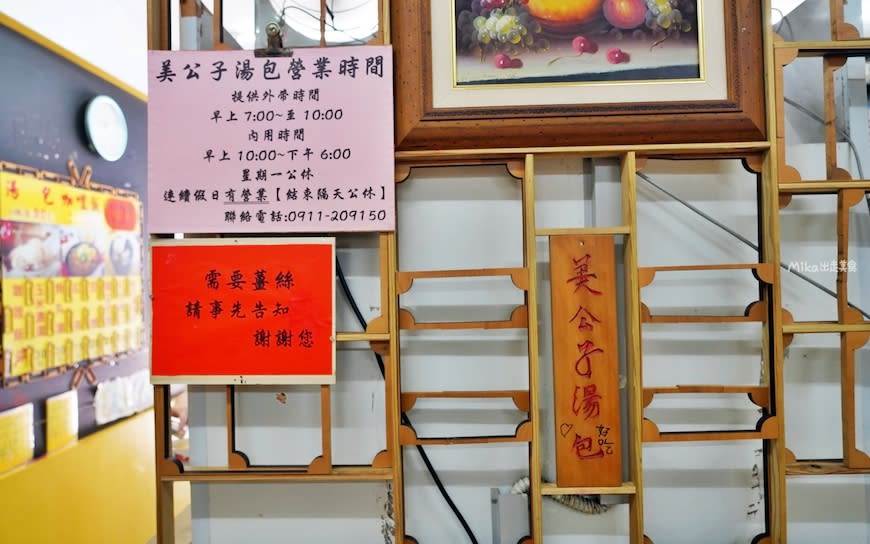 美公子湯包營業時間
提供外帶時間
早上 7:00~至 10:00
內用時間
早上 10:00~下午 6:00
星期一公休
連續假日有營業【結束隔天公休】
聯絡電話:0911-209150
需要薑絲
請事先告知
謝謝您
美公子湯包
好吃
湯包
Mika出走美食